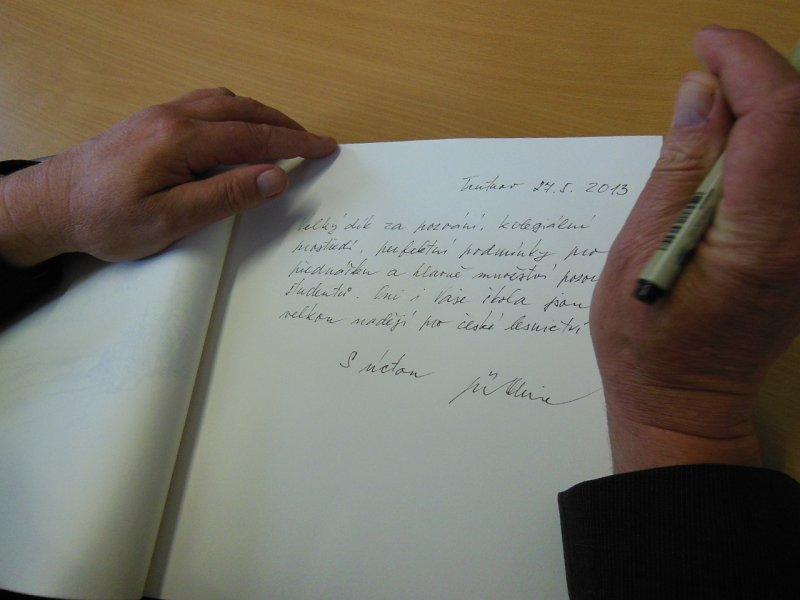 Trutnov 27.5. 2013
Velký dík za pozvání, kolegiální
prostředí, perfektní podmínky pro
přednášku a hlavně množství pozor
studentů. Oni i Vaše škola jsou
velkou nadějí pro české lesnictví
S úctou